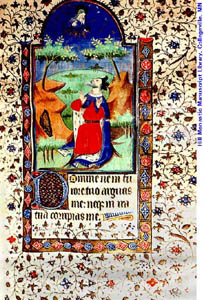 Domine ne in fu
rore tuo arguas
me neq̃ in ira
tua corripias me
Hill Monastic Manuscript Library, Collegeville, MN